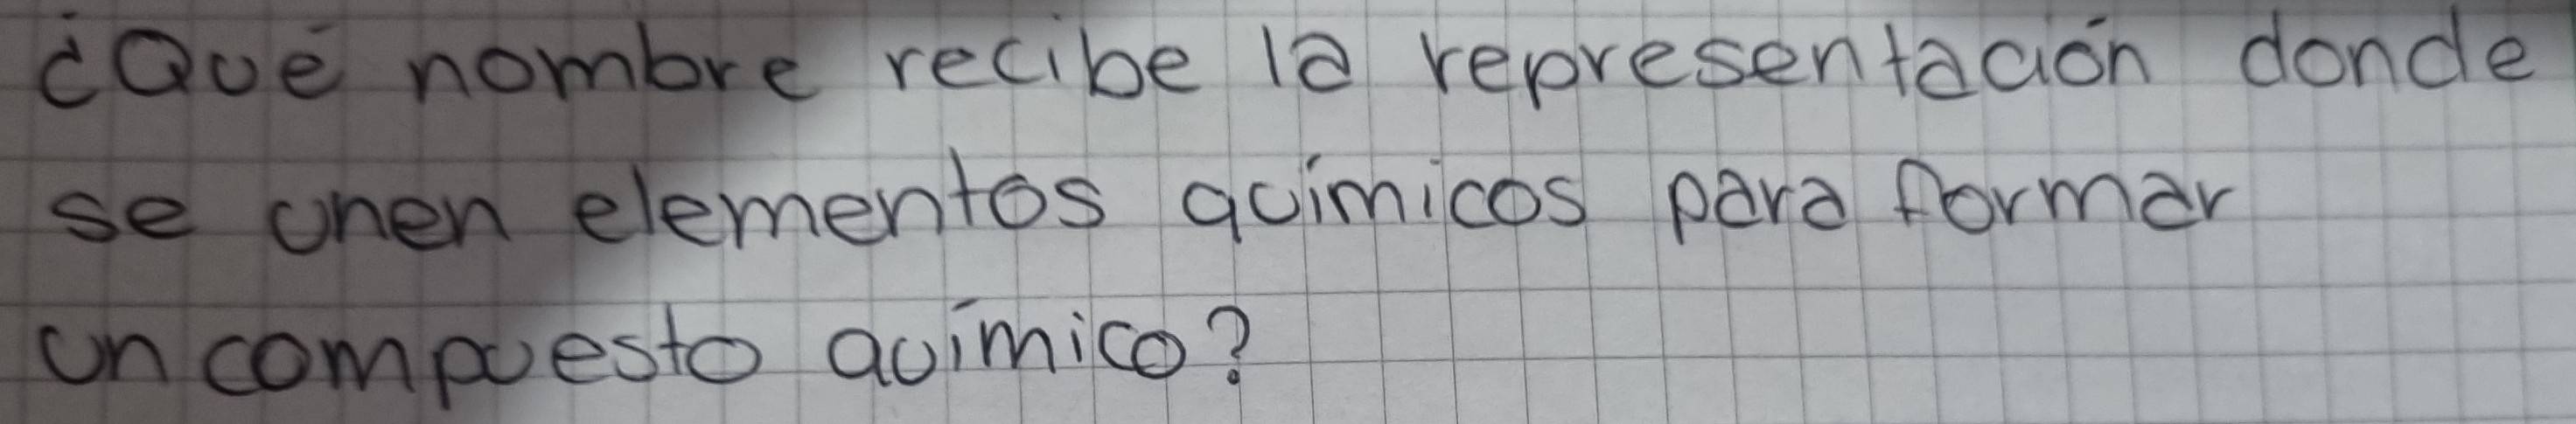 ¿Qué nombre recibe la representación donde
se unen elementos químicos para formar
un compuesto químico?